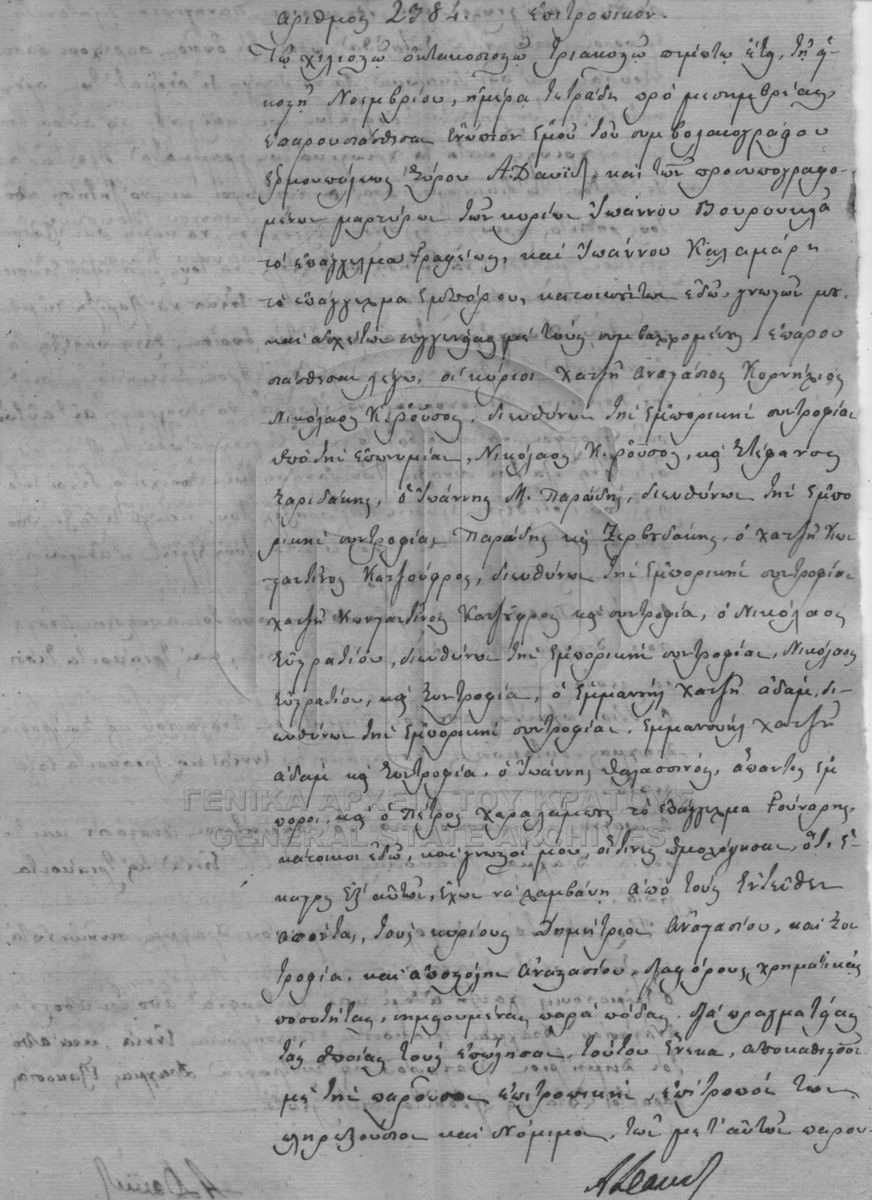 αριθμος 2384. Επιτροπικον.
Τῷ χιλιοστῷ ὀκτακοσιοστῷ τριακοστῷ πέμπτῳ ἔτει, τῇ εἰ-
κοστῇ Νοεμβρίου, ἡμέρᾳ τετράδῃ πρὸ μεσημβρίας
ἐπαρουσιάσθησαν ἐνώπιον ἐμοῦ τοῦ συμβολαιογράφου
Ερμουπόλεως Σύρου Α. Δαυὶδ, καὶ τῶν προσυπογραφο-
μένων μαρτύρων τῶν κυρίων Ἰωάννου Βουρουκλᾶ
τὸ ἐπάγγελμα γραφέως, καὶ Ἰωάννου Καλαμάρη
τὸ ἐπάγγελμα ἐμπόρου, κατοικούντων ἐδῶ, γνωστῶν μου
καὶ ἀσχέτων συγγενείας μὲ τοὺς συμβαλλομένους, ἐπαρου
σιάσθησαν λέγω, οἱ κύριοι Χατζῆ Αναστάσιος Κορνήλιος
Νικόλαος Κ. Ροῦσος, διευθύνων τὴν ἐμπορικὴν συντροφίαν
ὑπὸ τὴν ἐπωνυμίαν, Νικόλαος Κ. Ροῦσος, κς Στέφανος
Σαριδάκης, ὁ Ἰωάννης Μ. Παρωΐδης, διευθύνων τὴν ἐμπο
ρικὴν συντροφίαν Παρωΐδης κς Ζερβουδάκης, ὁ χατζῆ Κων
σταντῖνος Κατζούφρος, διευθύνων τὴν ἐμπορικὴν συντροφίαν
χατζῆ Κωνσταντῖνος Κατζούφρος κς συντροφία, ὁ Νικόλαος
Εὐστρατίου, διευθύνων τὴν ἐμπορικὴν συντροφίαν, Νικόλαος
Εὐστρατίου, κς Συντροφία, ὁ Ἐμμανουὴλ Χατζῆ ἀδάμ, δι-
ευθύνων τὴν ἐμπορικὴν συντροφίαν, Ἐμμανουὴλ Χατζῆ
ἀδὰμ κς Συντροφία, ὁ Ἰωάννης θαλασσινός, ἅπαντες ἔμ
ποροι, κς ὁ Πέτρος Χαραλάμπης τὸ ἐπάγγελμα Γούναρης,
κάτοικοι ἐδῶ, καὶ γνωστοί μου, οἵτινες ὡμολόγησαν, ὅτι ἕ-
καστος ἐξ αὐτῶν, ἔχων νὰ λαμβάνῃ ἀπὸ τοὺς ἐντεῦθεν
ἀπόντας, τοὺς κυρίους Δημήτριον Αναστασίου, καὶ Συν
τροφία, καὶ ἀποστόλην Αναστασίου, διαφόρους χρηματικὰς
ποσότητας, σημειουμένας παρὰ πόδας, διὰ πραγματείας
τὰς ὁποίας τοὺς ἐπώλησαν, τούτου ἕνεκα, ἀποκαθιστοῦν
μὲ τὴν παροῦσαν ἐπιτροπικὴν, ἐπίτροπόν των
πληρεξούσιον καὶ νόμιμον, τὸν μετ' αὐτῶν παρου
Α Δαυιδ
ΓΕΝΙΚΑ ΑΡΧΕΙΑ ΤΟΥ ΚΡΑΤΟΥΣ
GENERAL STATE ARCHIVES